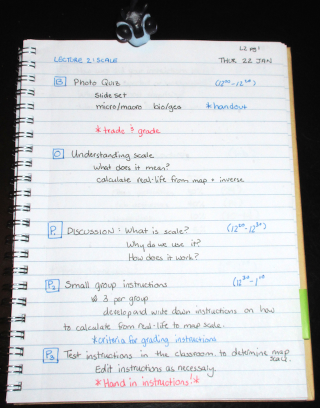 L2 pg 1
LECTURE 2: SCALE THUR 22 JAN
B. Photo Quiz (12²⁰-12³⁰)
Slide set
micro/macro bio/geo *handout
*trade & grade
O. Understanding scale
What does it mean?
calculate real-life from map + inverse
P. DISCUSSION: What is scale? (12²⁰-12³⁰)
Why do we use it?
How does it work?
P2 Small group instructions (12³⁰-1⁰⁰
3 per group
develop and write down instructions on how
to calculate from real-life to map scale.
*criteria for grading instructions
P3 Test instructions in the classroom to determine map scale.
Edit instructions as necessary.
*Hand in instructions!*